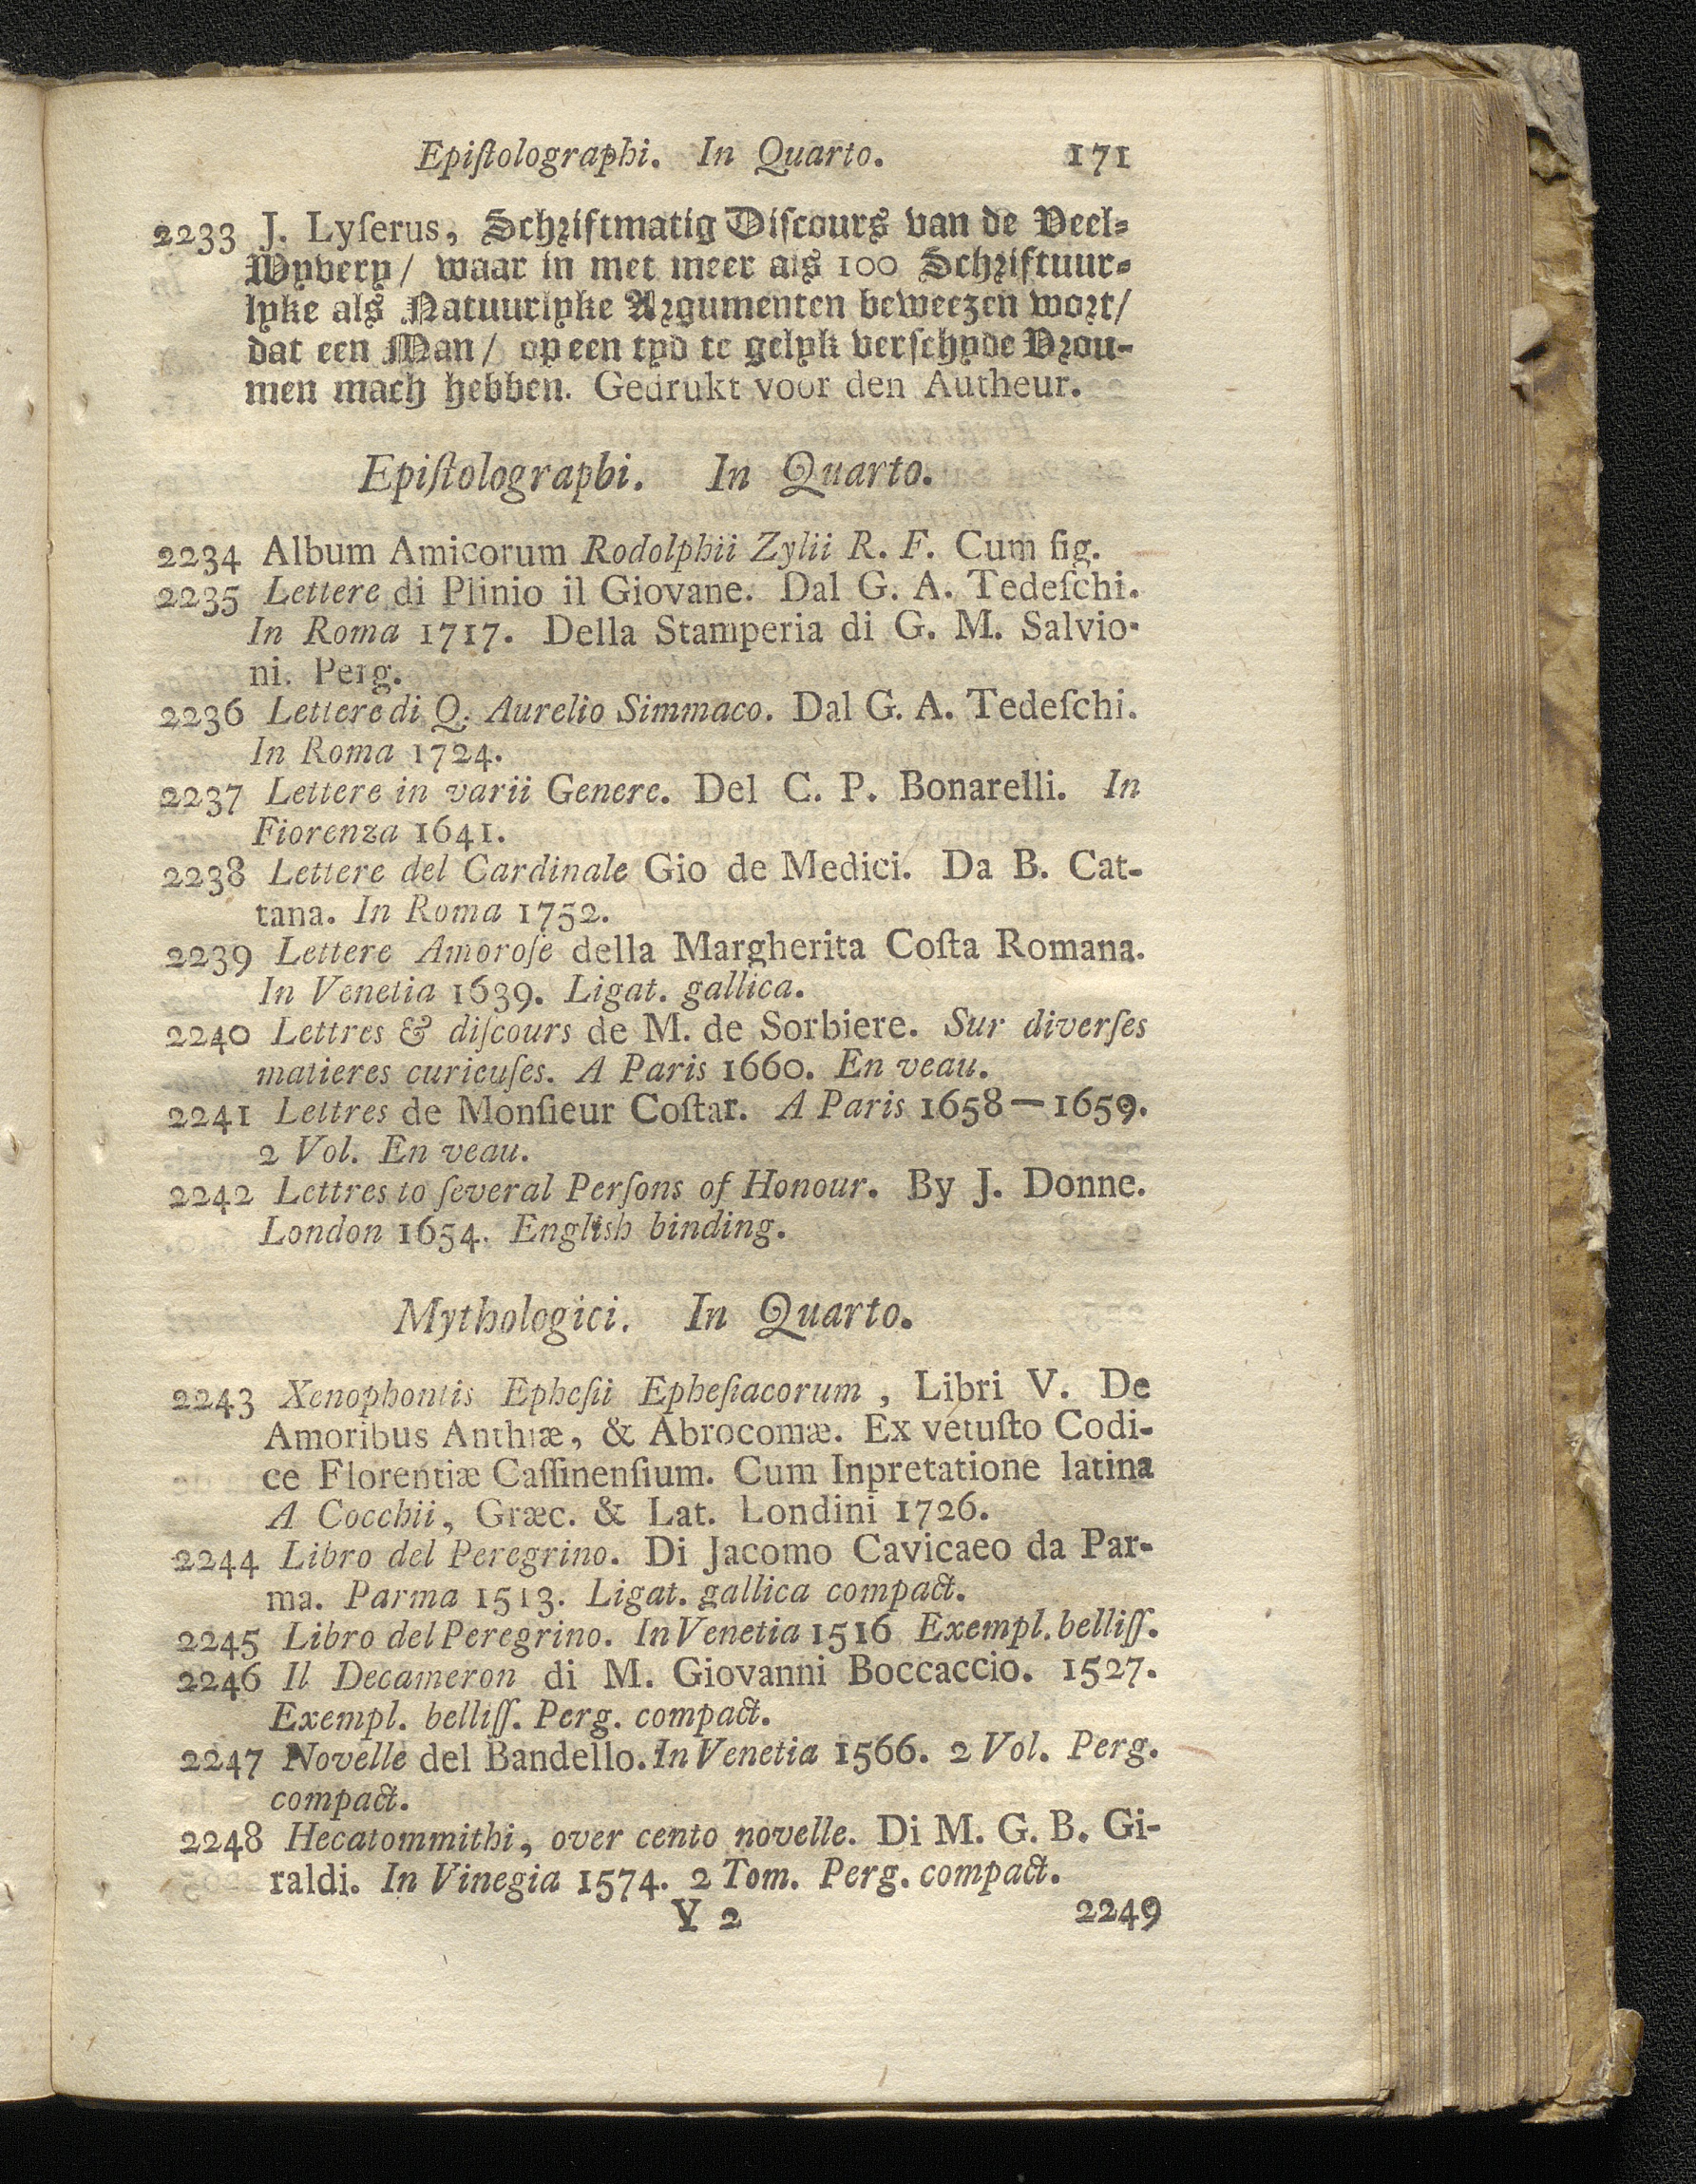 Epiſtolographi. In Quarto. 171
2233 J. Lyſerus, Schriftmatig Diſcours van de Veel-
Wyvery/ waar in met meer als 100 Schriftuur-
lyke als Natuurlyke Argumenten beweezen wort/
dat een Man/ op een tyd te gelyk verſchyde Vrou-
men mach hebben. Gedrukt voor den Autheur.
Epiſtolographi. In Quarto.
2234 Album Amicorum Rodolphii Zylii R. F. Cum fig.
2235 Lettere di Plinio il Giovane. Dal G. A. Tedeſchi.
In Roma 1717. Della Stamperia di G. M. Salvio-
ni. Perg.
2236 Lettere di Q. Aurelio Simmaco. Dal G. A. Tedeſchi.
In Roma 1724.
2237 Lettere in varii Genere. Del C. P. Bonarelli. In
Fiorenza 1641.
2238 Lettere del Cardinale Gio de Medici. Da B. Cat-
tana. In Roma 1752.
2239 Lettere Amoroſe della Margherita Coſta Romana.
In Venetia 1639. Ligat. gallica.
2240 Lettres & diſcours de M. de Sorbiere. Sur diverſes
matieres curieuſes. A Paris 1660. En veau.
2241 Lettres de Monſieur Coſtar. A Paris 1658—1659.
2 Vol. En veau.
2242 Lettres to ſeveral Perſons of Honour. By J. Donne.
London 1654. English binding.
Mythologici. In Quarto.
2243 Xenophontis Epheſii Epheſiacorum, Libri V. De
Amoribus Anthiæ, & Abrocomæ. Ex vetuſto Codi-
ce Florentiæ Caſſinenſium. Cum Inpretatione latina
A Cocchii, Græc. & Lat. Londini 1726.
2244 Libro del Peregrino. Di Jacomo Cavicaeo da Par-
ma. Parma 1513. Ligat. gallica compact.
2245 Libro del Peregrino. In Venetia 1516 Exempl. belliſſ.
2246 Il Decameron di M. Giovanni Boccaccio. 1527.
Exempl. belliſſ. Perg. compact.
2247 Novelle del Bandello. In Venetia 1566. 2 Vol. Perg.
compact.
2248 Hecatommithi, over cento novelle. Di M. G. B. Gi-
raldi. In Vinegia 1574. 2 Tom. Perg. compact.
Y 2 2249